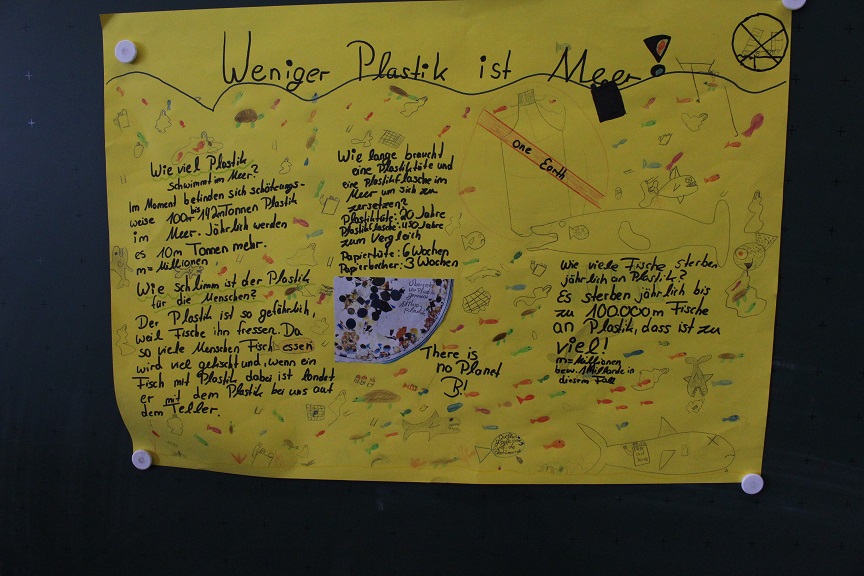 Weniger Plastik ist Meer!
Wie viel Plastik
schwimmt im Meer?
Im Moment befinden sich schätzungs-
weise 100m bis 142m Tonnen Plastik
im Meer. Jährlich werden
es 10m Tonnen mehr.
m= Millionen
Wie schlimm ist der Plastik
für die Menschen?
Der Plastik ist so gefährlich,
weil Fische ihn fressen. Da
so viele Menschen Fisch essen
wird viel gefischt und, wenn ein
Fisch mit Plastik dabei ist landet
er mit dem Plastik bei uns auf
dem Teller.
Wie lange braucht
eine Plastiktüte und
eine Plastikflasche im
Meer um sich zu
zersetzen?
Plastiktüte: 20 Jahre
Plastikflasche: 450 Jahre
zum Vergleich
Papiertüte: 6 Wochen
Papierbecher: 3 Wochen
There is
no Planet
B!
one Earth
Wie viele Fische sterben
jährlich an Plastik?
Es sterben jährlich bis
zu 100.000m Fische
an Plastik, dass ist zu
viel!
m= Millionen
bzw. 1 Milliarde in
diesem Fall